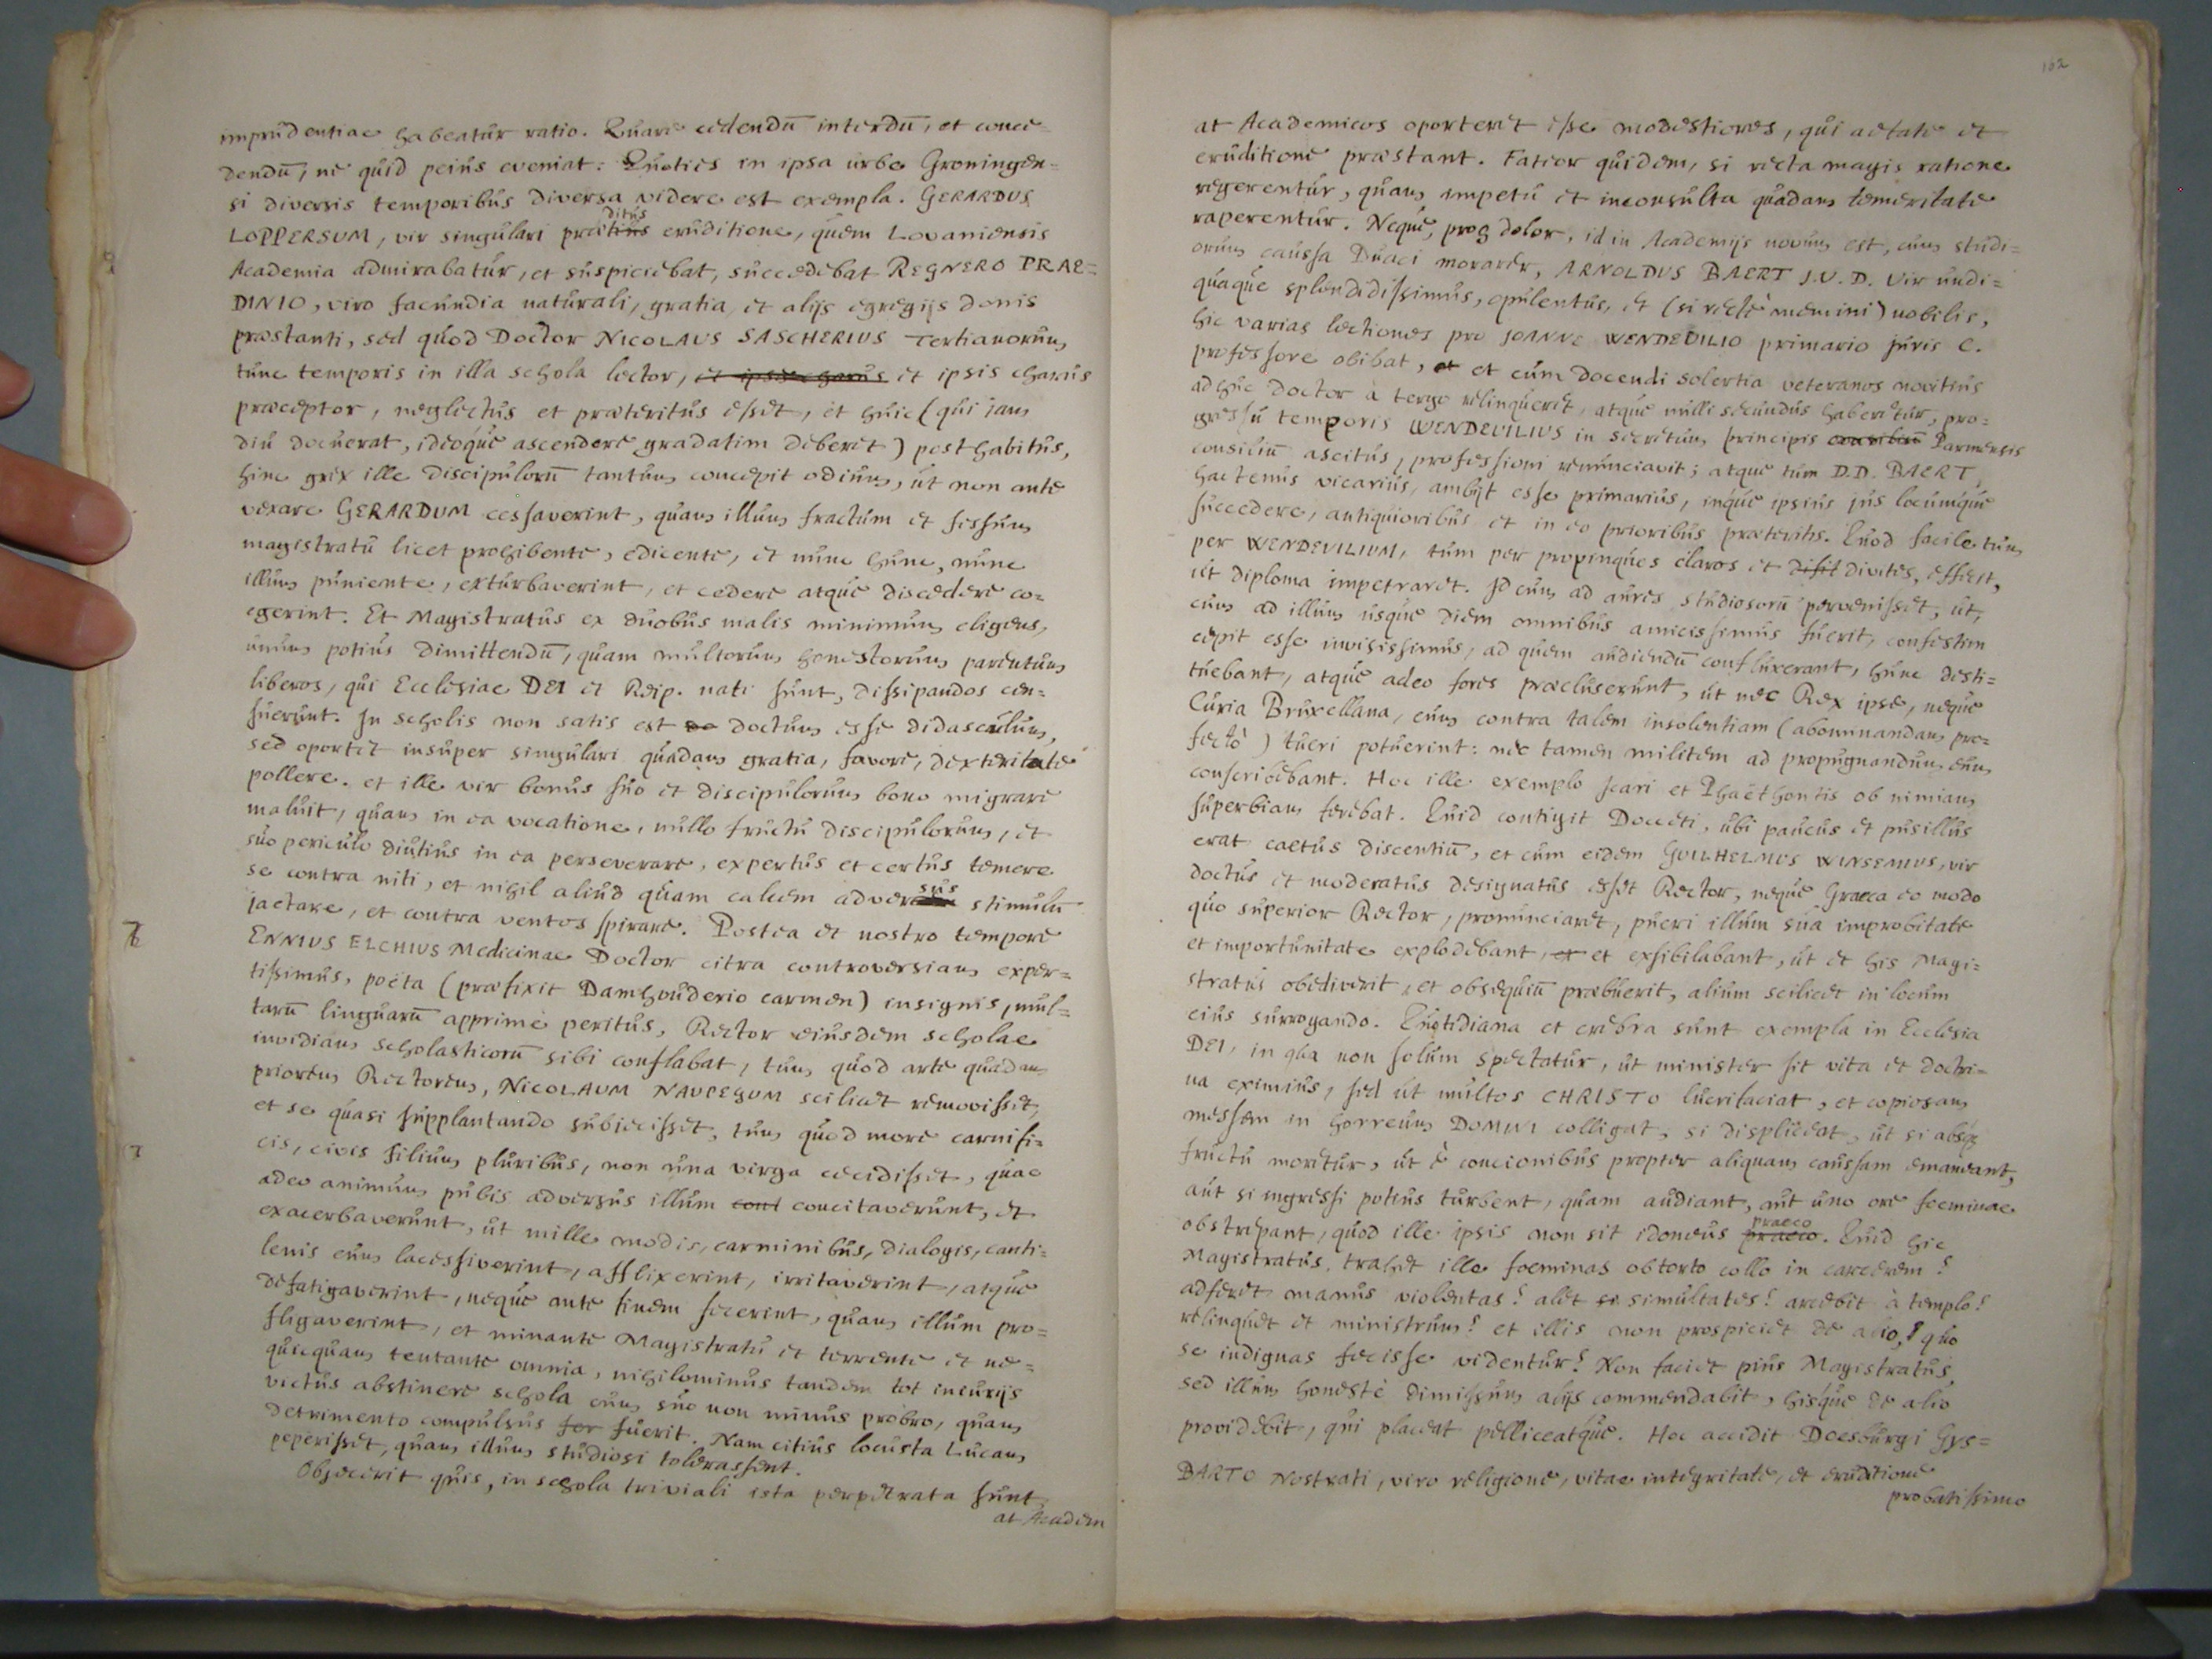 imprudentiae habeatur ratio. Quare cedendū interdū, et conce=
dendū, ne quid peius eveniat: Quoties in ipsa urbe Groningen=
si diversis temporibus diversa videre est exempla. GERARDUS
LOPPERSUM, vir singulari praeditus eruditione, quem Lovaniensis
Academia admirabatur, et suspiciebat, succedebat REGNERO PRAE=
DINIO, viro facundia naturali, gratia, et alijs egregijs donis
praestanti, sed quod Doctor NICOLAUS SASCHERIUS Tertianorum
tunc temporis in illa schola lector, et ipsis charus et ipsis charus
praeceptor, neglectus et praeteritus esset, et huic (qui jam
diu docuerat, ideoque ascendere gradatim deberet) posthabitus,
hinc grex ille discipulorū tantum concepit odium, ut non ante
vexare GERARDUM cessaverint, quam illum fractum et fessum
magistratu licet prohibente, edicente, et nunc hunc, nunc
illum puniente, exturbaverint, et cedere atque discedere co=
egerint. Et Magistratus ex duobus malis minimum eligens,
unum potius dimittendū, quam multorum honestorum parentum
liberos, qui Ecclesiae DEI et Reip. nati sunt, dissipandos cen=
suerunt. In scholis non satis est do doctum esse didasculum,
sed oportet insuper singulari quadam gratia, favore, dexteritate
pollere. et ille vir bonus suo et discipulorum bono migrare
maluit, quam in ea vocatione, nullo fructu discipulorum, et
suo periculo diutius in ea perseverare, expertus et certus temere
se contra niti, et nihil aliud quam calcem adversus stimulū
jactare, et contra ventos spirare. Postea et nostro tempore
ENNIUS ELCHIUS Medicinae Doctor citra controversiam exper=
tissimus, poëta (praefixit Damhouderio carmen) insignis, mul=
tarū linguarū apprime peritus, Rector eiusdem scholae
invidiam scholasticorū sibi conflabat, tum quod arte quadam
priorem Rectorem, NICOLAUM NAUPEGUM scilicet removisset,
et se quasi supplantando subjecisset, tum quod more carnifi=
cis, civis filium pluribus, non una virga cecidisset, quae
adeo animum pubis adversus illum cont concitaverunt, et
exacerbaverunt, ut mille modis, carminibus, dialogis, canti=
lenis eum lacessiverint, afflixerint, irritaverint, atque
defatigaverint, neque ante finem fecerint, quam illum pro=
fligaverint, et minante Magistratu et terrente et ne=
quicquam tentante omnia, nihilominus tandem tot injurijs
victus abstinere schola cum suo non minus probro, quam
detrimento compulsus fer fuerit. Nam citius locusta Lucam
peperisset, quam illum studiosi tolerassent.
Objecerit quis, in schola triviali ista perpetrata sunt,
at Academ
162
at Academicos oporteret esse modestiores, qui aetate et
eruditione praestant. Fateor quidem, si recta magis ratione
regerentur, quam impetu et inconsulta quadam temeritate
raperentur. Neque, proh dolor, id in Academijs novum est, cum studi=
orum caussa Duaci morarer, ARNOLDUS BAERT J.U.D. Vir undi=
quaque splendidissimus, opulentus, et (si recte memini) nobilis,
hic varias lectiones pro JOANNE WENDEVILIO primario juris C.
professore obibat, et et cum docendi solertia veteranos novitius
adhuc Doctor à tergo relinqueret, atque nulli secundus haberetur, pro=
gressu temporis WENDEVILIUS in secretum principis consiliū Parmensis
consiliū ascitus, professioni renunciavit; atque tum D.D. BAERT,
hactenus vicarius, ambijt esse primarius, inque ipsius jus locumque
succedere, antiquioribus et in eo prioribus praeteritis. Quod facile tum
per WENDEVILIUM, tum per propinquos claros et disit divites, effecit,
ut diploma impetraret. Id cum ad aures studiosorū pervenisset, ut,
cum ad illum usque diem omnibus amicissimus fuerit, confestim
cepit esse invisissimus, ad quem audiendū confluxerant, hunc desti=
tuebant, atque adeo fores praecluserunt, ut nec Rex ipse, neque
Curia Bruxellana, eum contra talem insolentiam (abominandam pro=
fecto) tueri potuerint: nec tamen militem ad propugnandum eum
conscribebant. Hoc ille exemplo Icari et Phaëthontis ob nimiam
superbiam ferebat. Quid contigit Docceti, ubi paucus et pusillus
erat caetus discentiū, et cum eidem GUILHELMUS WINSEMIUS, vir
doctus et moderatus designatus esset Rector, neque Graeca eo modo
quo superior Rector, pronunciaret, pueri illum sua improbitate
et importunitate explodebant, et et exsibilabant, ut et his Magi=
stratus obediverit, et obsequiū praebuerit, alium scilicet in locum
eius surrogando. Quotidiana et crebra sunt exempla in Ecclesia
DEI, in qua non solum spectatur, ut minister sit vita et doctri=
na eximius, sed ut multos CHRISTO lucrifaciat, et copiosam
messem in horreum DOMINI colligat, si displiceat, ut si absque
fructu moretur, ut è concionibus propter aliquam caussam emaneant,
aut si ingressi potius turbent, quam audiant, aut uno ore foeminae
obstrepant, quod ille ipsis non sit idoneus praeco praeco. Quid hic
Magistratus, trahet ille foeminas obtorto collo in carcerem?
adferet manus violentas? alet se simultates? arcebit à templo?
relinquet et ministrum? et illis non prospiciet de alio, quo
se indignas fecisse videntur? Non faciet pius Magistratus,
sed illum honestè dimissum alijs commendabit, hisque de alio
providebit, qui placeat pelliceatque. Hoc accidit Doesburgi GYS=
BARTO Nostrati, viro religione, vitae integritate, et eruditione
probatissimo